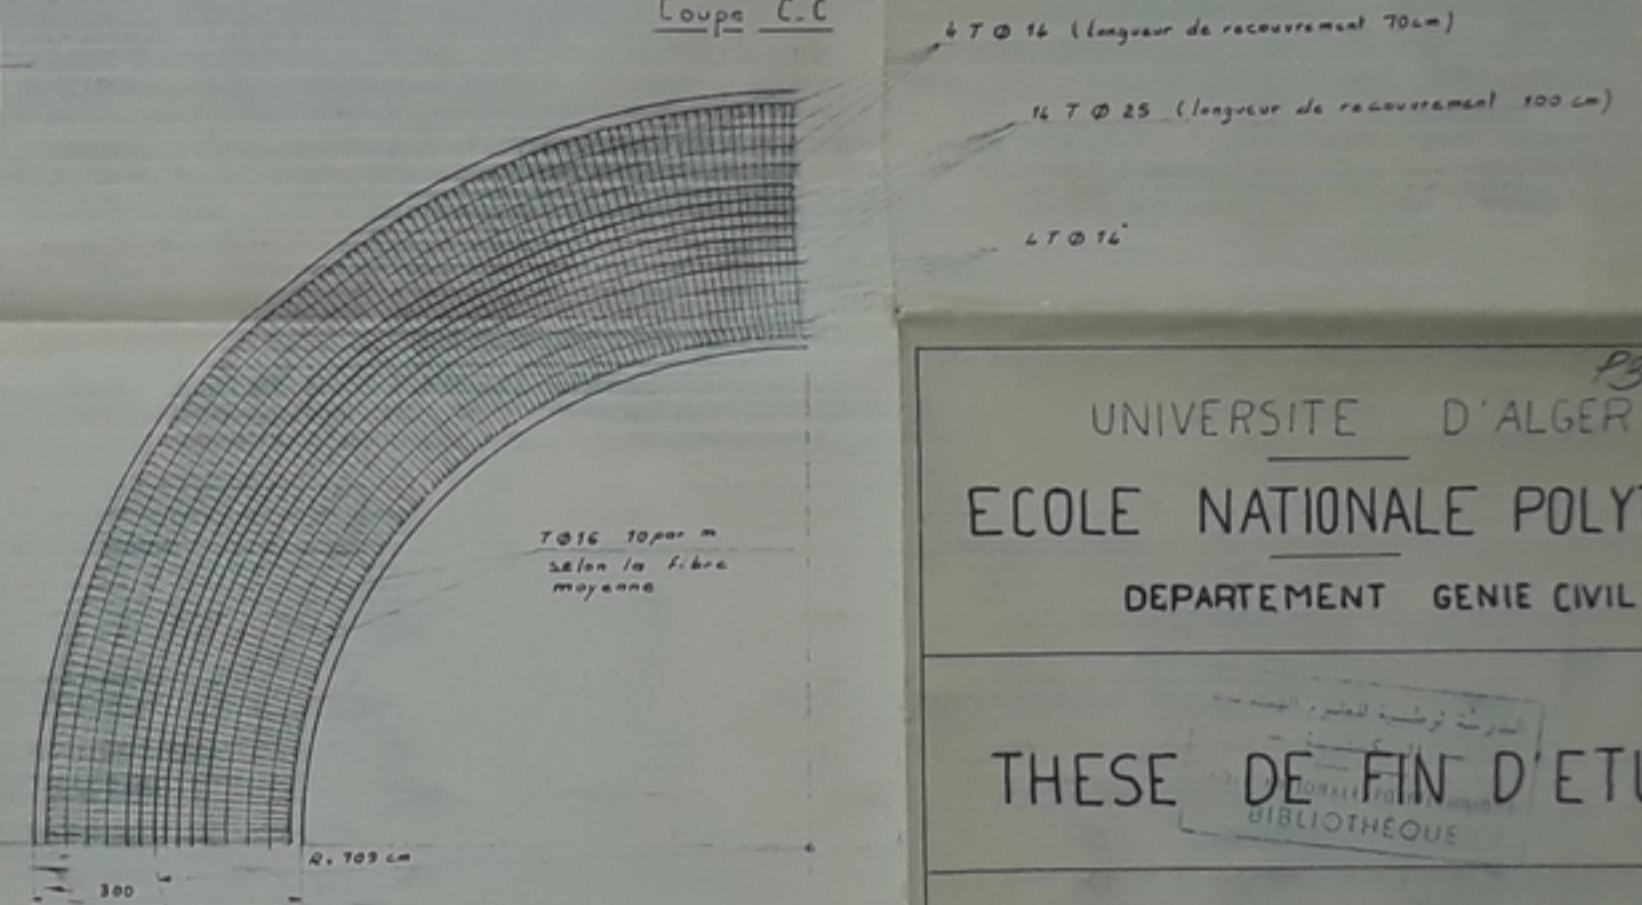 Coupe C-C
4 T Ø 14 (longueur de recouvrement 70cm)
14 T Ø 25 (longueur de recouvrement 100 cm)
4 T Ø 14
T Ø 16 10 par m
selon la fibre
moyenne
R. 709 cm
300
P3
UNIVERSITE D'ALGER
ECOLE NATIONALE POLY
DEPARTEMENT GENIE CIVIL
THESE DE FIN D'ETU
BIBLIOTHÉQUE